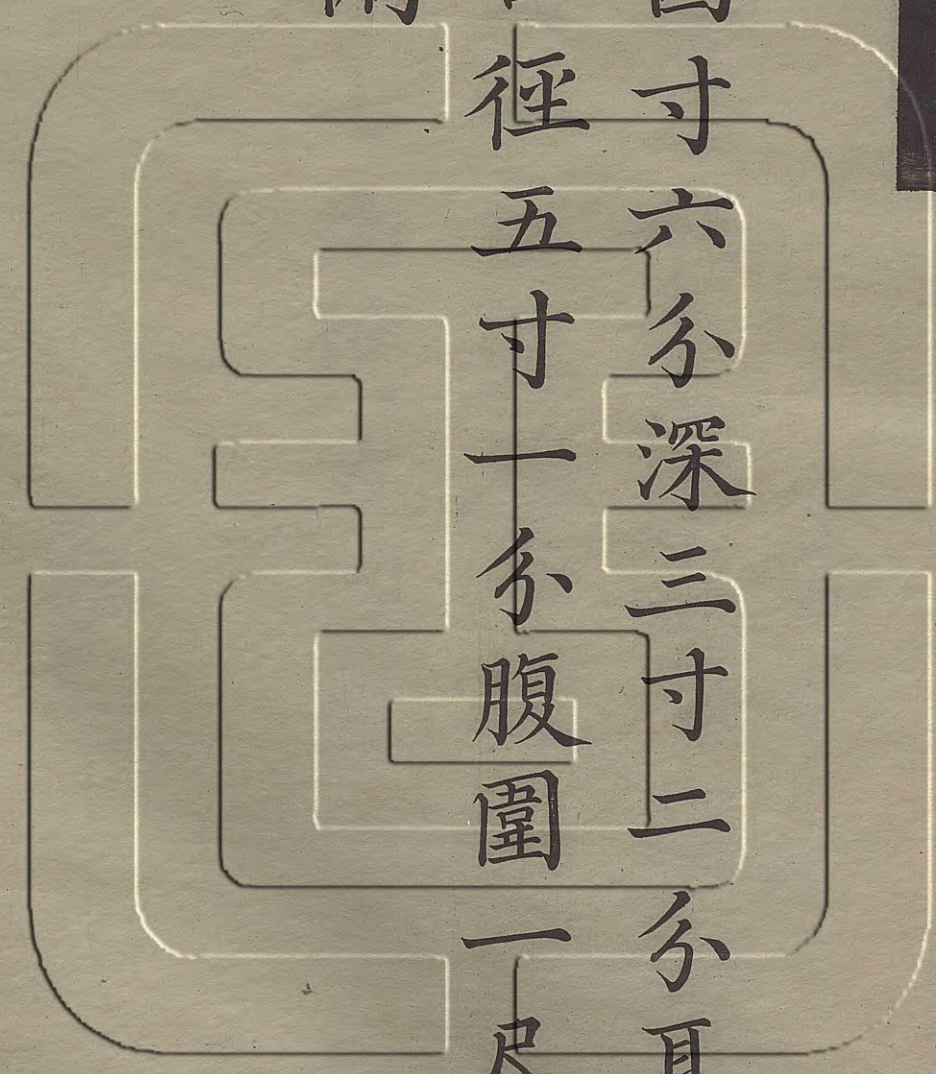 寸六分深三寸二分耳
徑五寸一分腹圍一尺